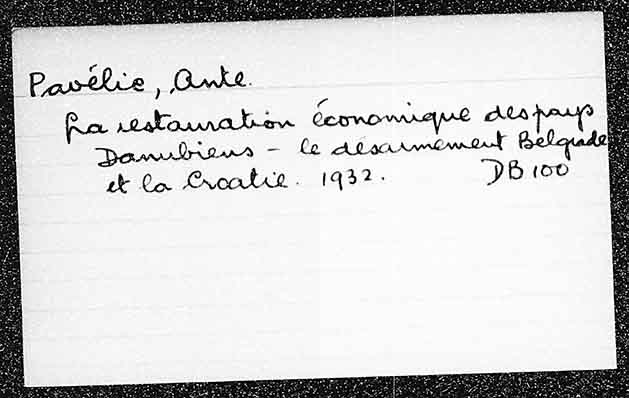 Pavélic, Ante.
La restauration économique des pays
Danubiens - le désarmement Belgrade
et la Croatie. 1932. DB100